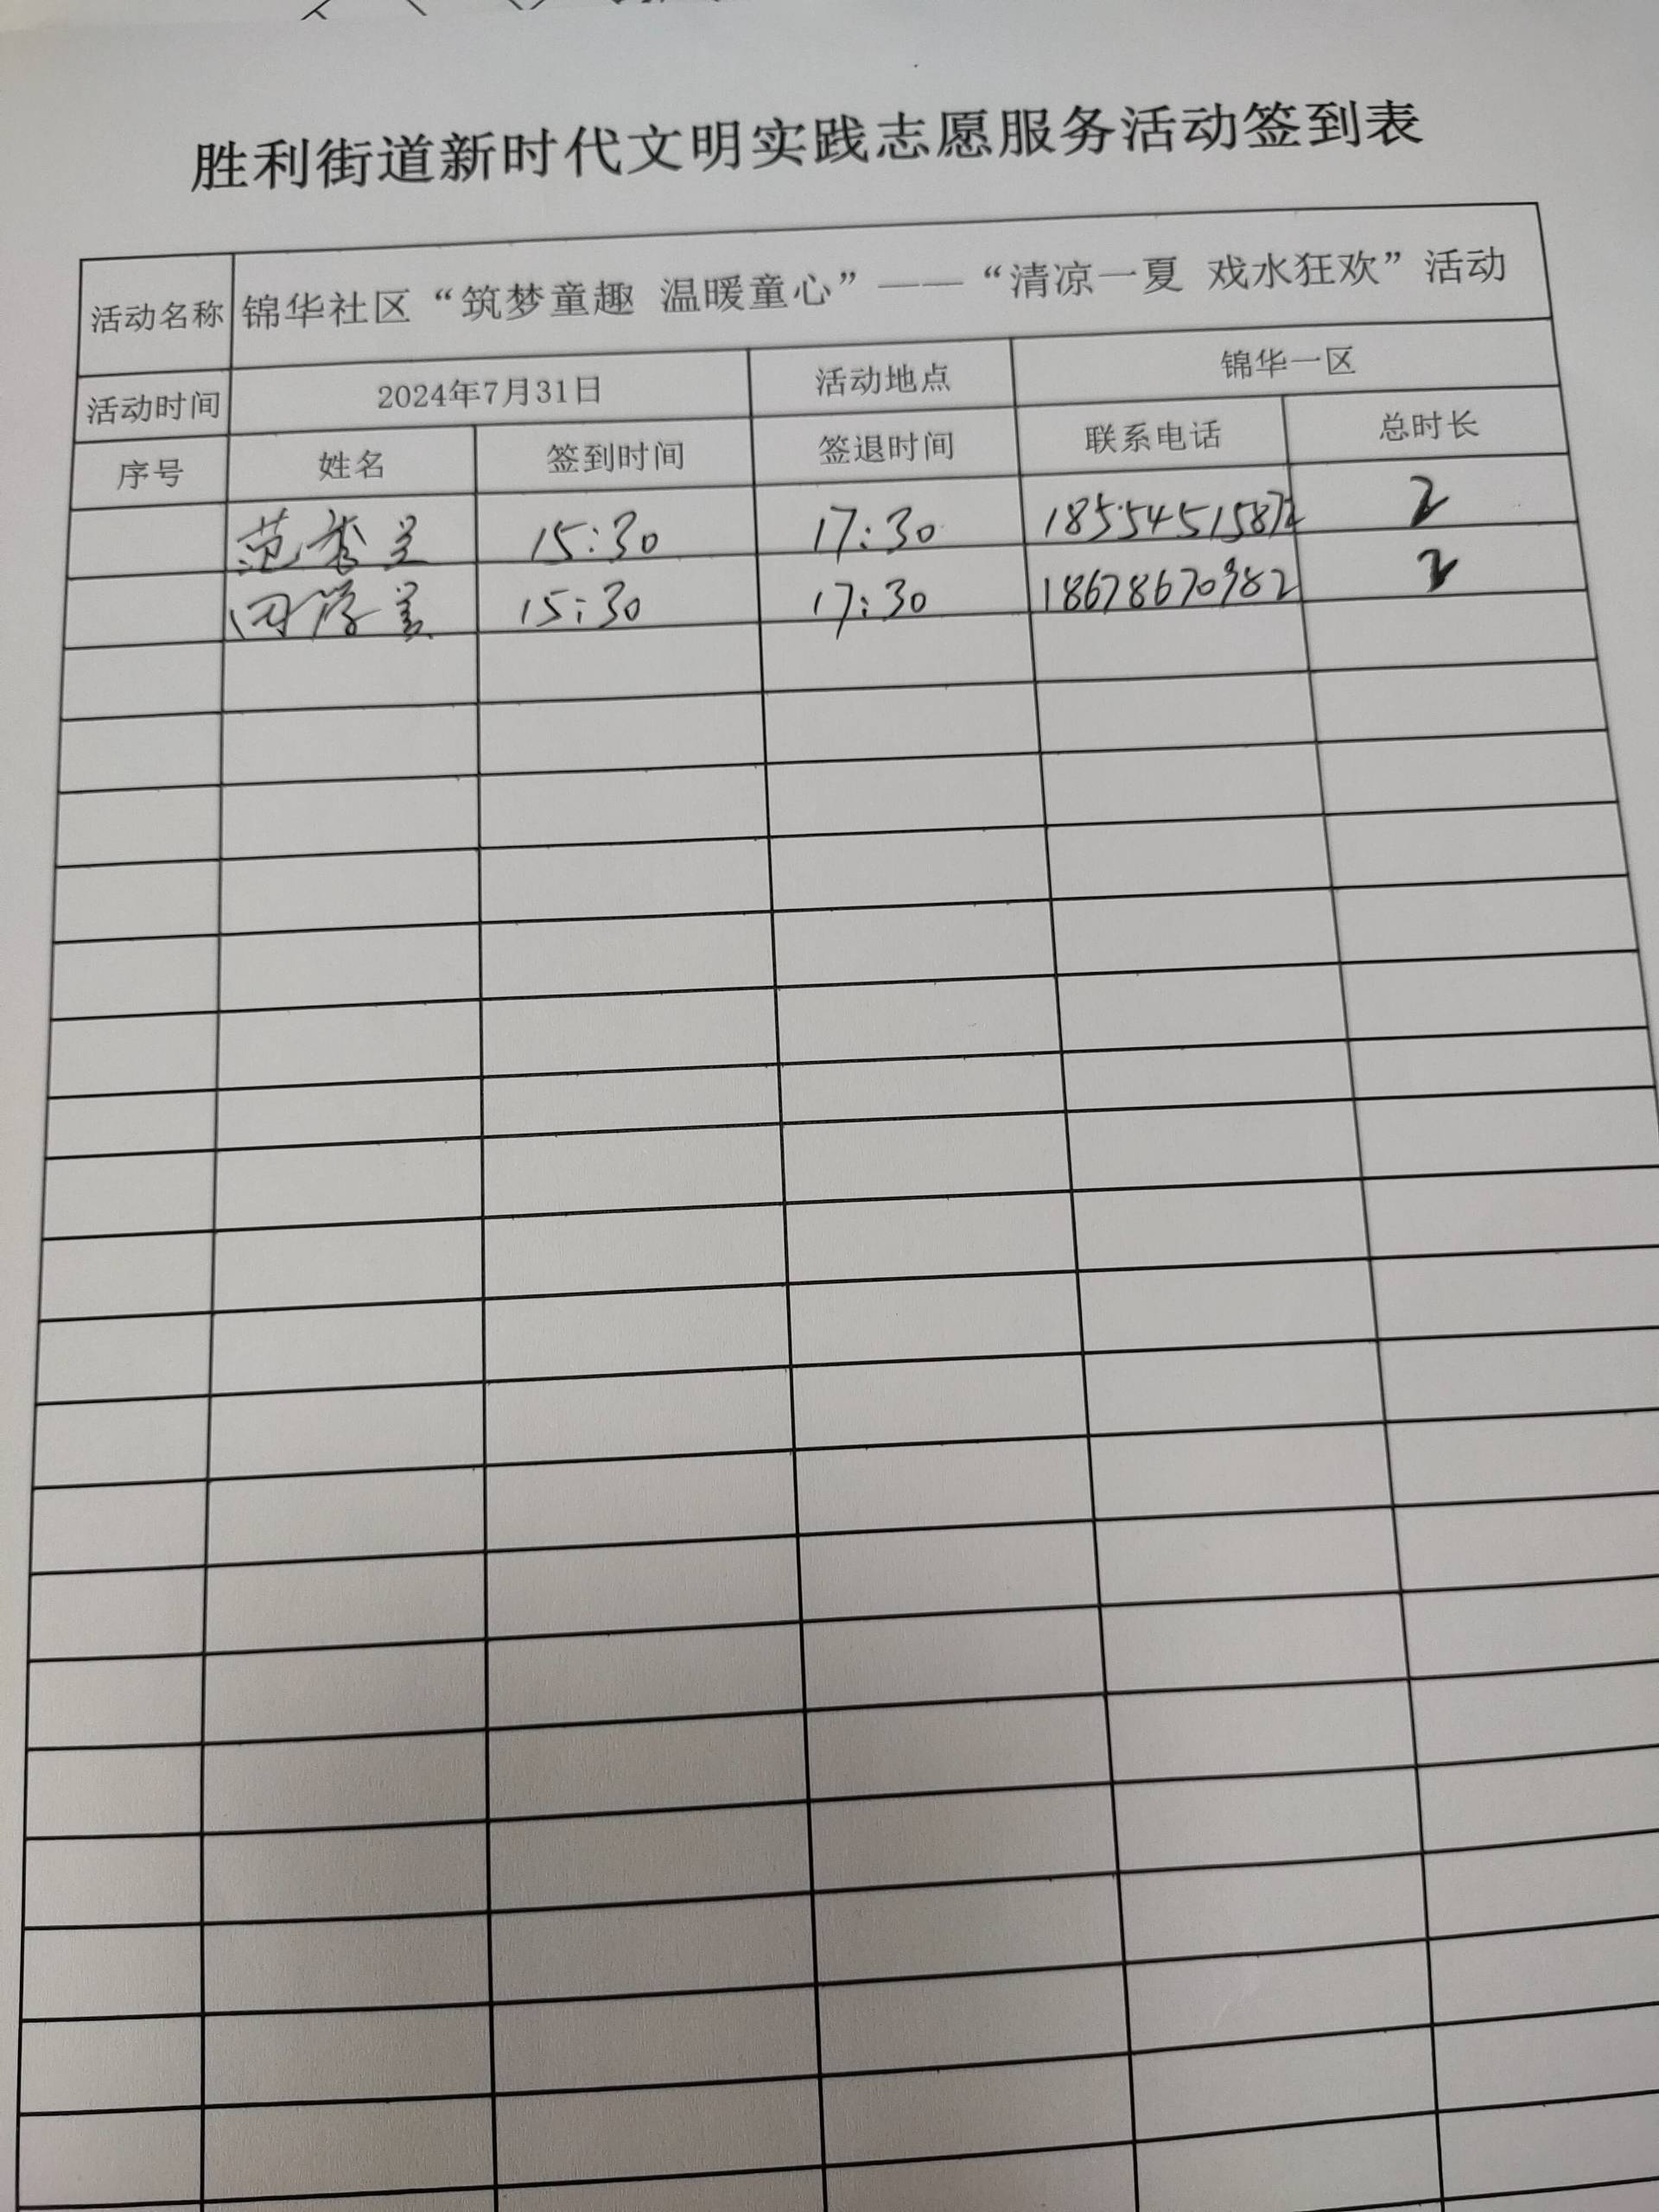 胜利街道新时代文明实践志愿服务活动签到表
活动名称 锦华社区“筑梦童趣 温暖童心”——“清凉一夏 戏水狂欢”活动
活动时间 2024年7月31日 活动地点 锦华一区
序号 姓名 签到时间 签退时间 联系电话 总时长
范秀 15:30 17:30 18554515872 2
15:30 17:30 18678670982 2